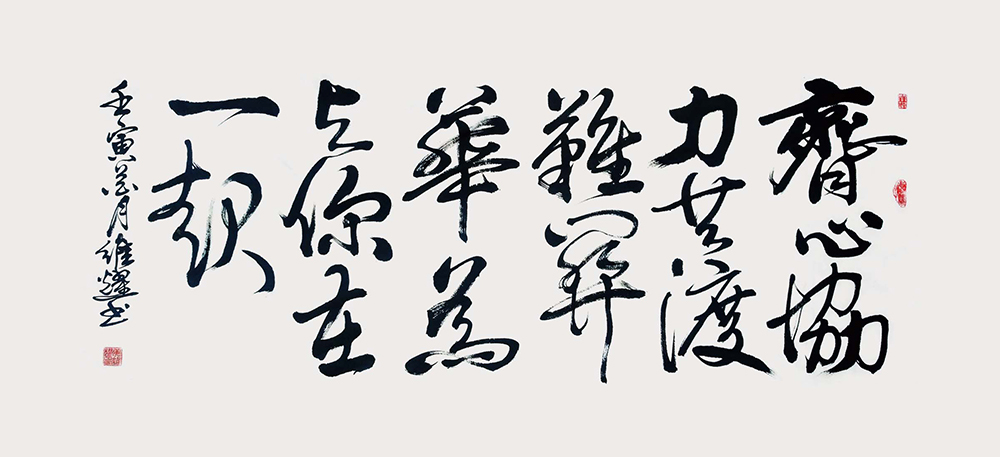 齊心協
力共渡
難關
華為
与你在
一起
壬寅月維耀书